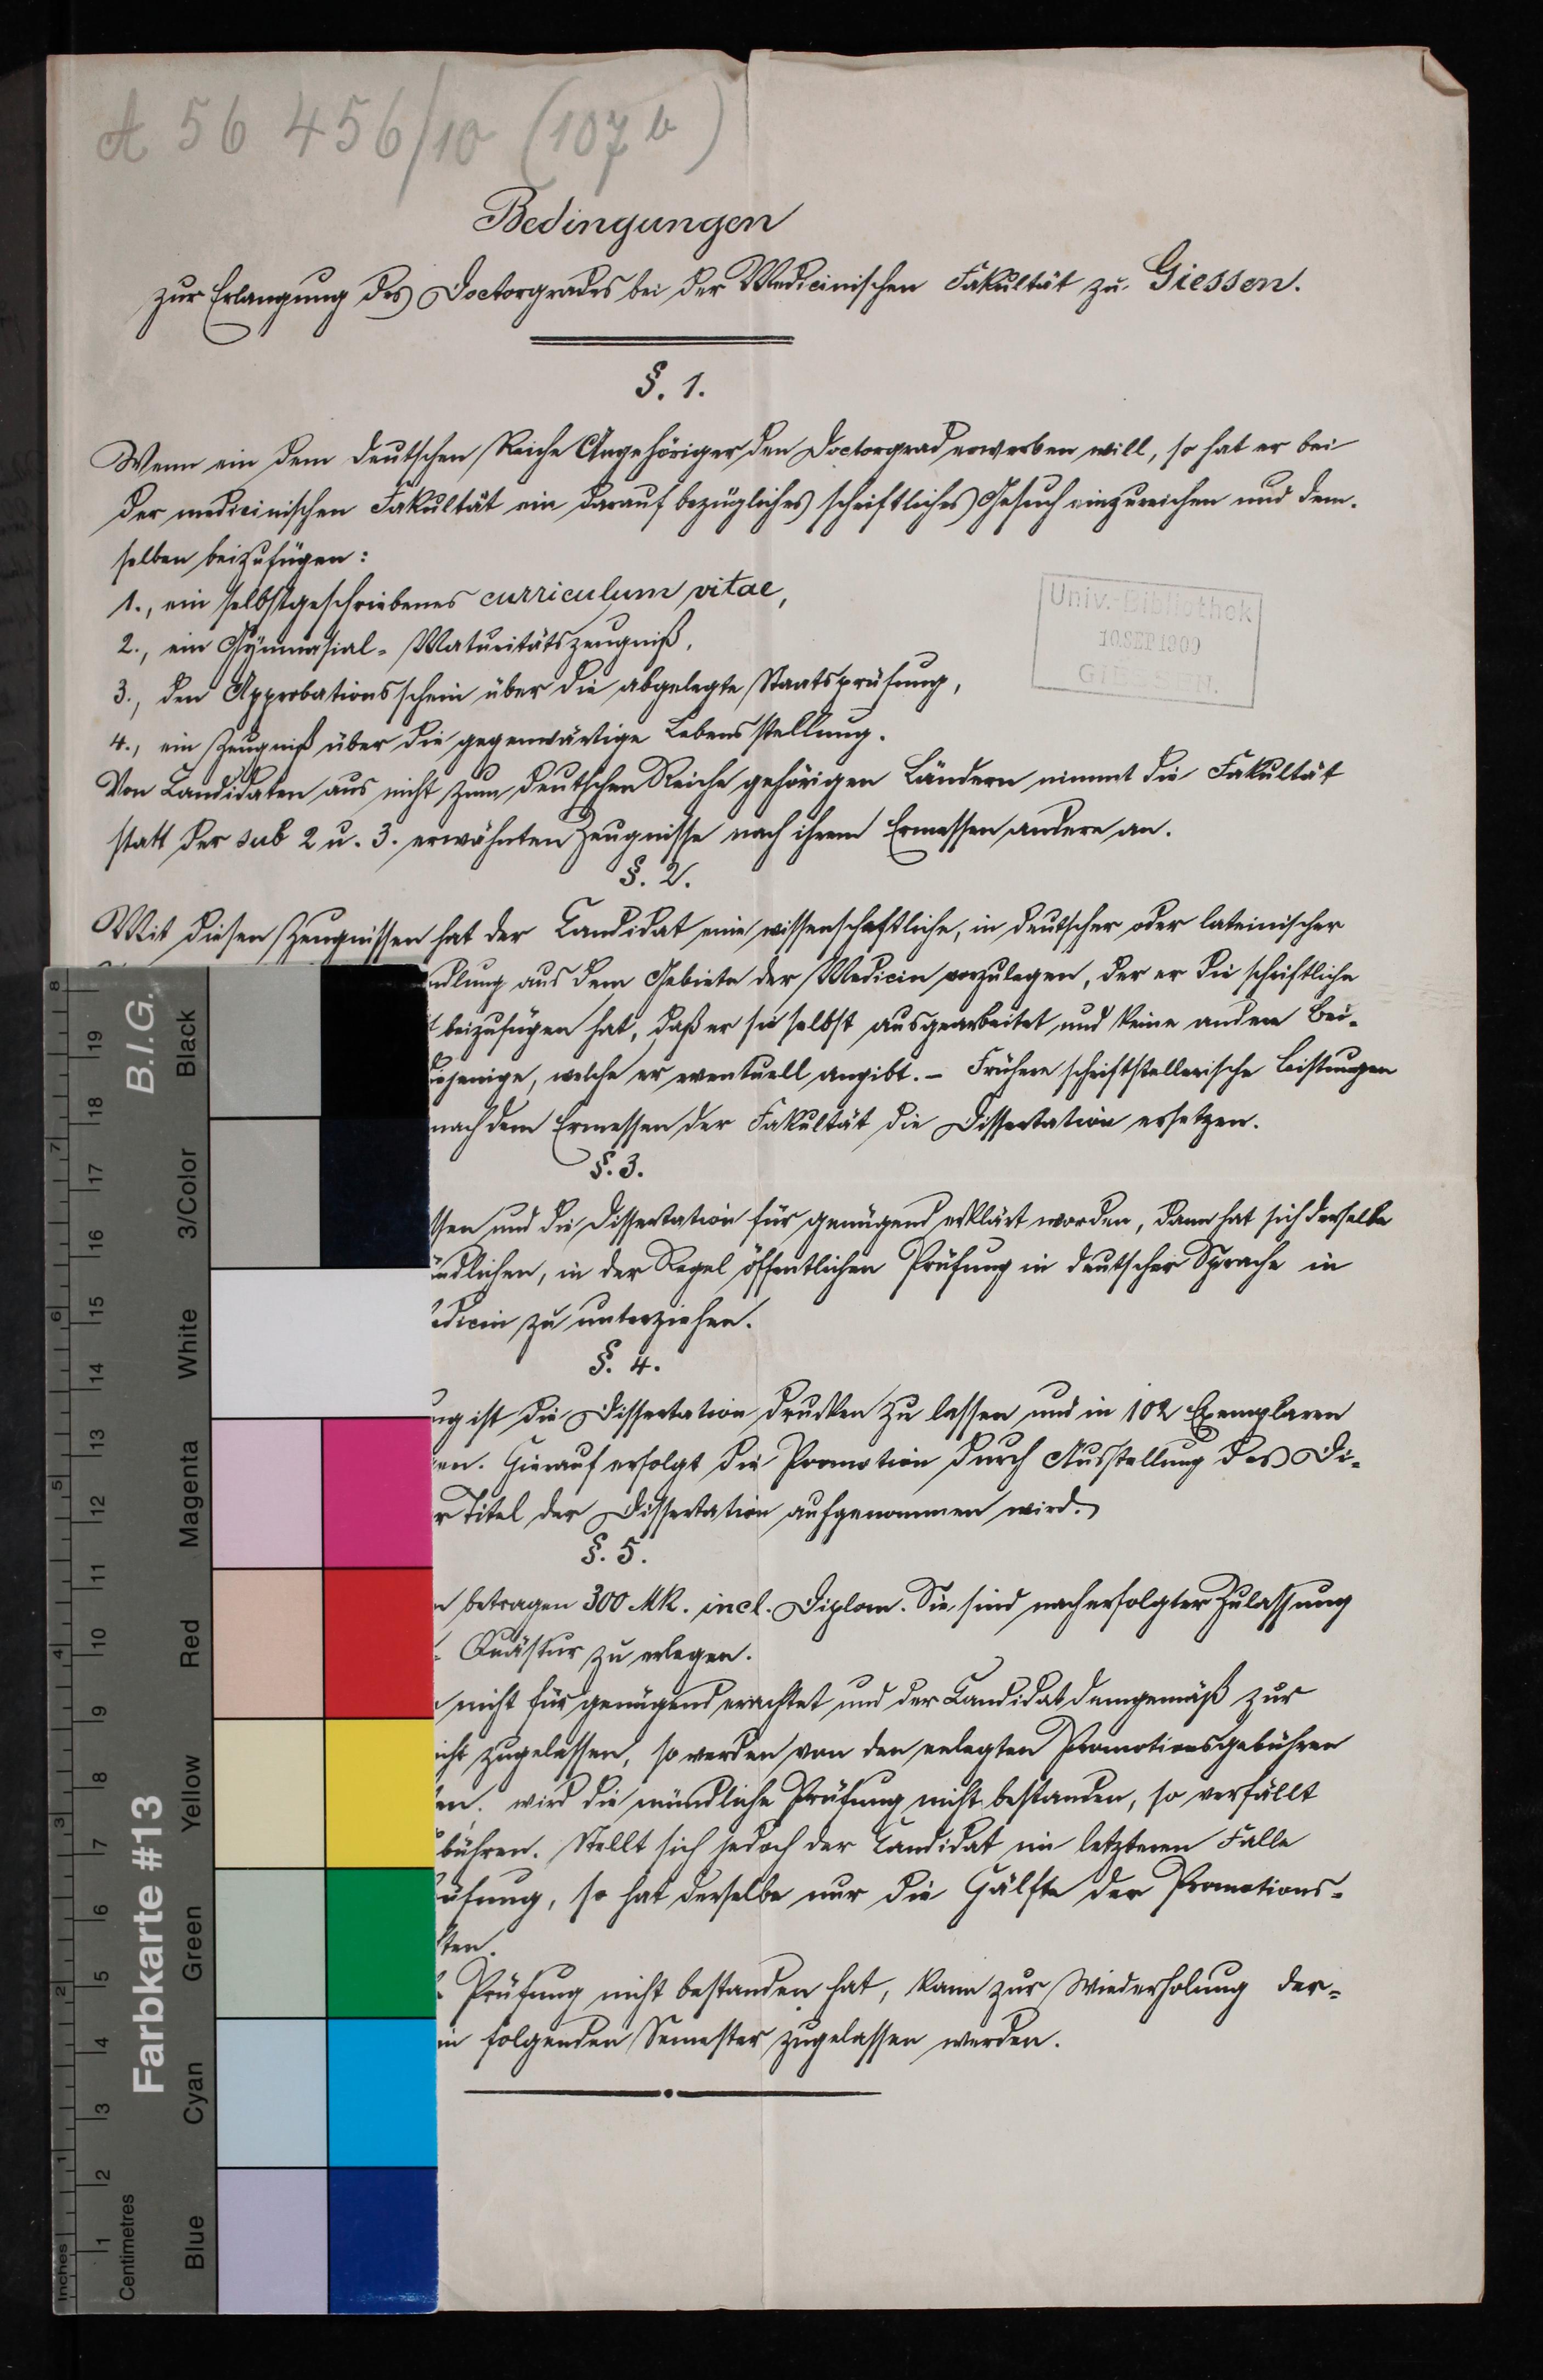 A 56 456/10 (107 b)
Bedingungen
zur Erlangung des Doctorgrades bei der Medicinischen Fakultät zu Giessen.
§. 1.
Wenn ein dem deutschen Reiche Angehöriger den Doctorgrad erwerben will, so hat er bei
der medicinischen Fakultät ein darauf bezügliches schriftliches Gesuch einzureichen und dem-
selben beizufügen:
1., ein selbstgeschriebenes curriculum vitae,
2., ein Gymnasial-Maturitätszeugniß,
3., den Approbationsschein über die abgelegte Staatsprüfung,
4., ein Zeugniß über die gegenwärtige Lebensstellung.
Von Candidaten aus nicht zum deutschen Reiche gehörigen Ländern nimmt die Fakultät
statt der sub 2 u. 3. erwähnten Zeugnisse nach ihrem Ermessen andere an.
Univ.-Bibliothek
10. SEP 1900
GIESSEN.
§. 2.
Mit diesen Zeugnissen hat der Candidat eine wissenschaftliche, in deutscher oder lateinischer
ndlung aus dem Gebiete der Medicin vorzulegen, der er die schriftliche
t beizufügen hat, daß er sie selbst ausgearbeitet und keine andere Bei-
diejenige, welche er eventuell angibt. – Frühere schriftstellerische Leistungen
nach dem Ermessen der Fakultät die Dissertation ersetzen.
§. 3.
ssen und die Dissertation für genügend erklärt worden, dann hat sich derselbe
ündlichen, in der Regel öffentlichen Prüfung in deutscher Sprache in
edicin zu unterziehen.
§. 4.
ng ist die Dissertation drucken zu lassen und in 102 Exemplaren
en. Hierauf erfolgt die Promotion durch Ausstellung des Di-
r Titel der Dissertation aufgenommen wird.
§. 5.
n betragen 300 Mk. incl. Diplom. Sie sind nach erfolgter Zulassung
Quästur zu erlegen.
nicht für genügend erachtet und der Candidat demgemäß zur
icht zugelassen, so werden von den erlegten Promotionsgebühren
en. wird die mündliche Prüfung nicht bestanden, so verfällt
bühren. Stellt sich jedoch der Candidat im letzteren Falle
üfung, so hat derselbe nur die Hälfte der Promotions-
ten.
Prüfung nicht bestanden hat, kann zur Wiederholung der-
in folgenden Semester zugelassen werden.
B.I.G.
Farbkarte #13
Black
3/Color
White
Magenta
Red
Yellow
Green
Cyan
Blue
19 18 17 16 15 14 13 12 11 10 9 8 7 6 5 4 3 2 1
Centimetres
8 7 6 5 4 3 2 1
Inches